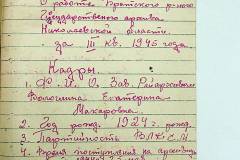 О работе Братского район.
Государственного архива
Николаевской области
за III кв. 1945 года
Кадры.
1. Ф. И. О. Зав. Райархивом
Екатерина
Макаровна.
2. Год рожд. 1924 г. рожд.
3. Партийность ВЛКСМ
4. Время поступления на